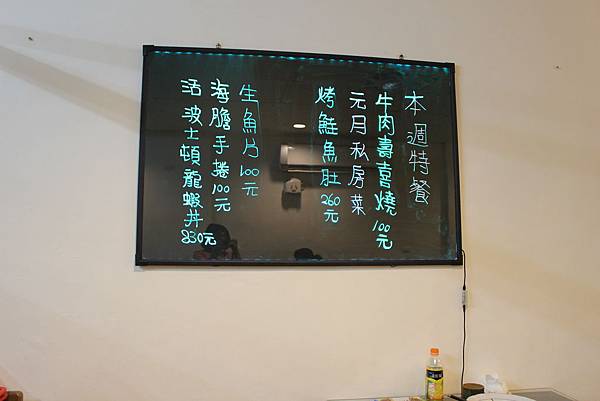 本週特餐
牛肉壽喜燒100元
元月私房菜
烤鮭魚肚260元
生魚片100元
海膽手捲100元
活波士頓龍蝦丼830元